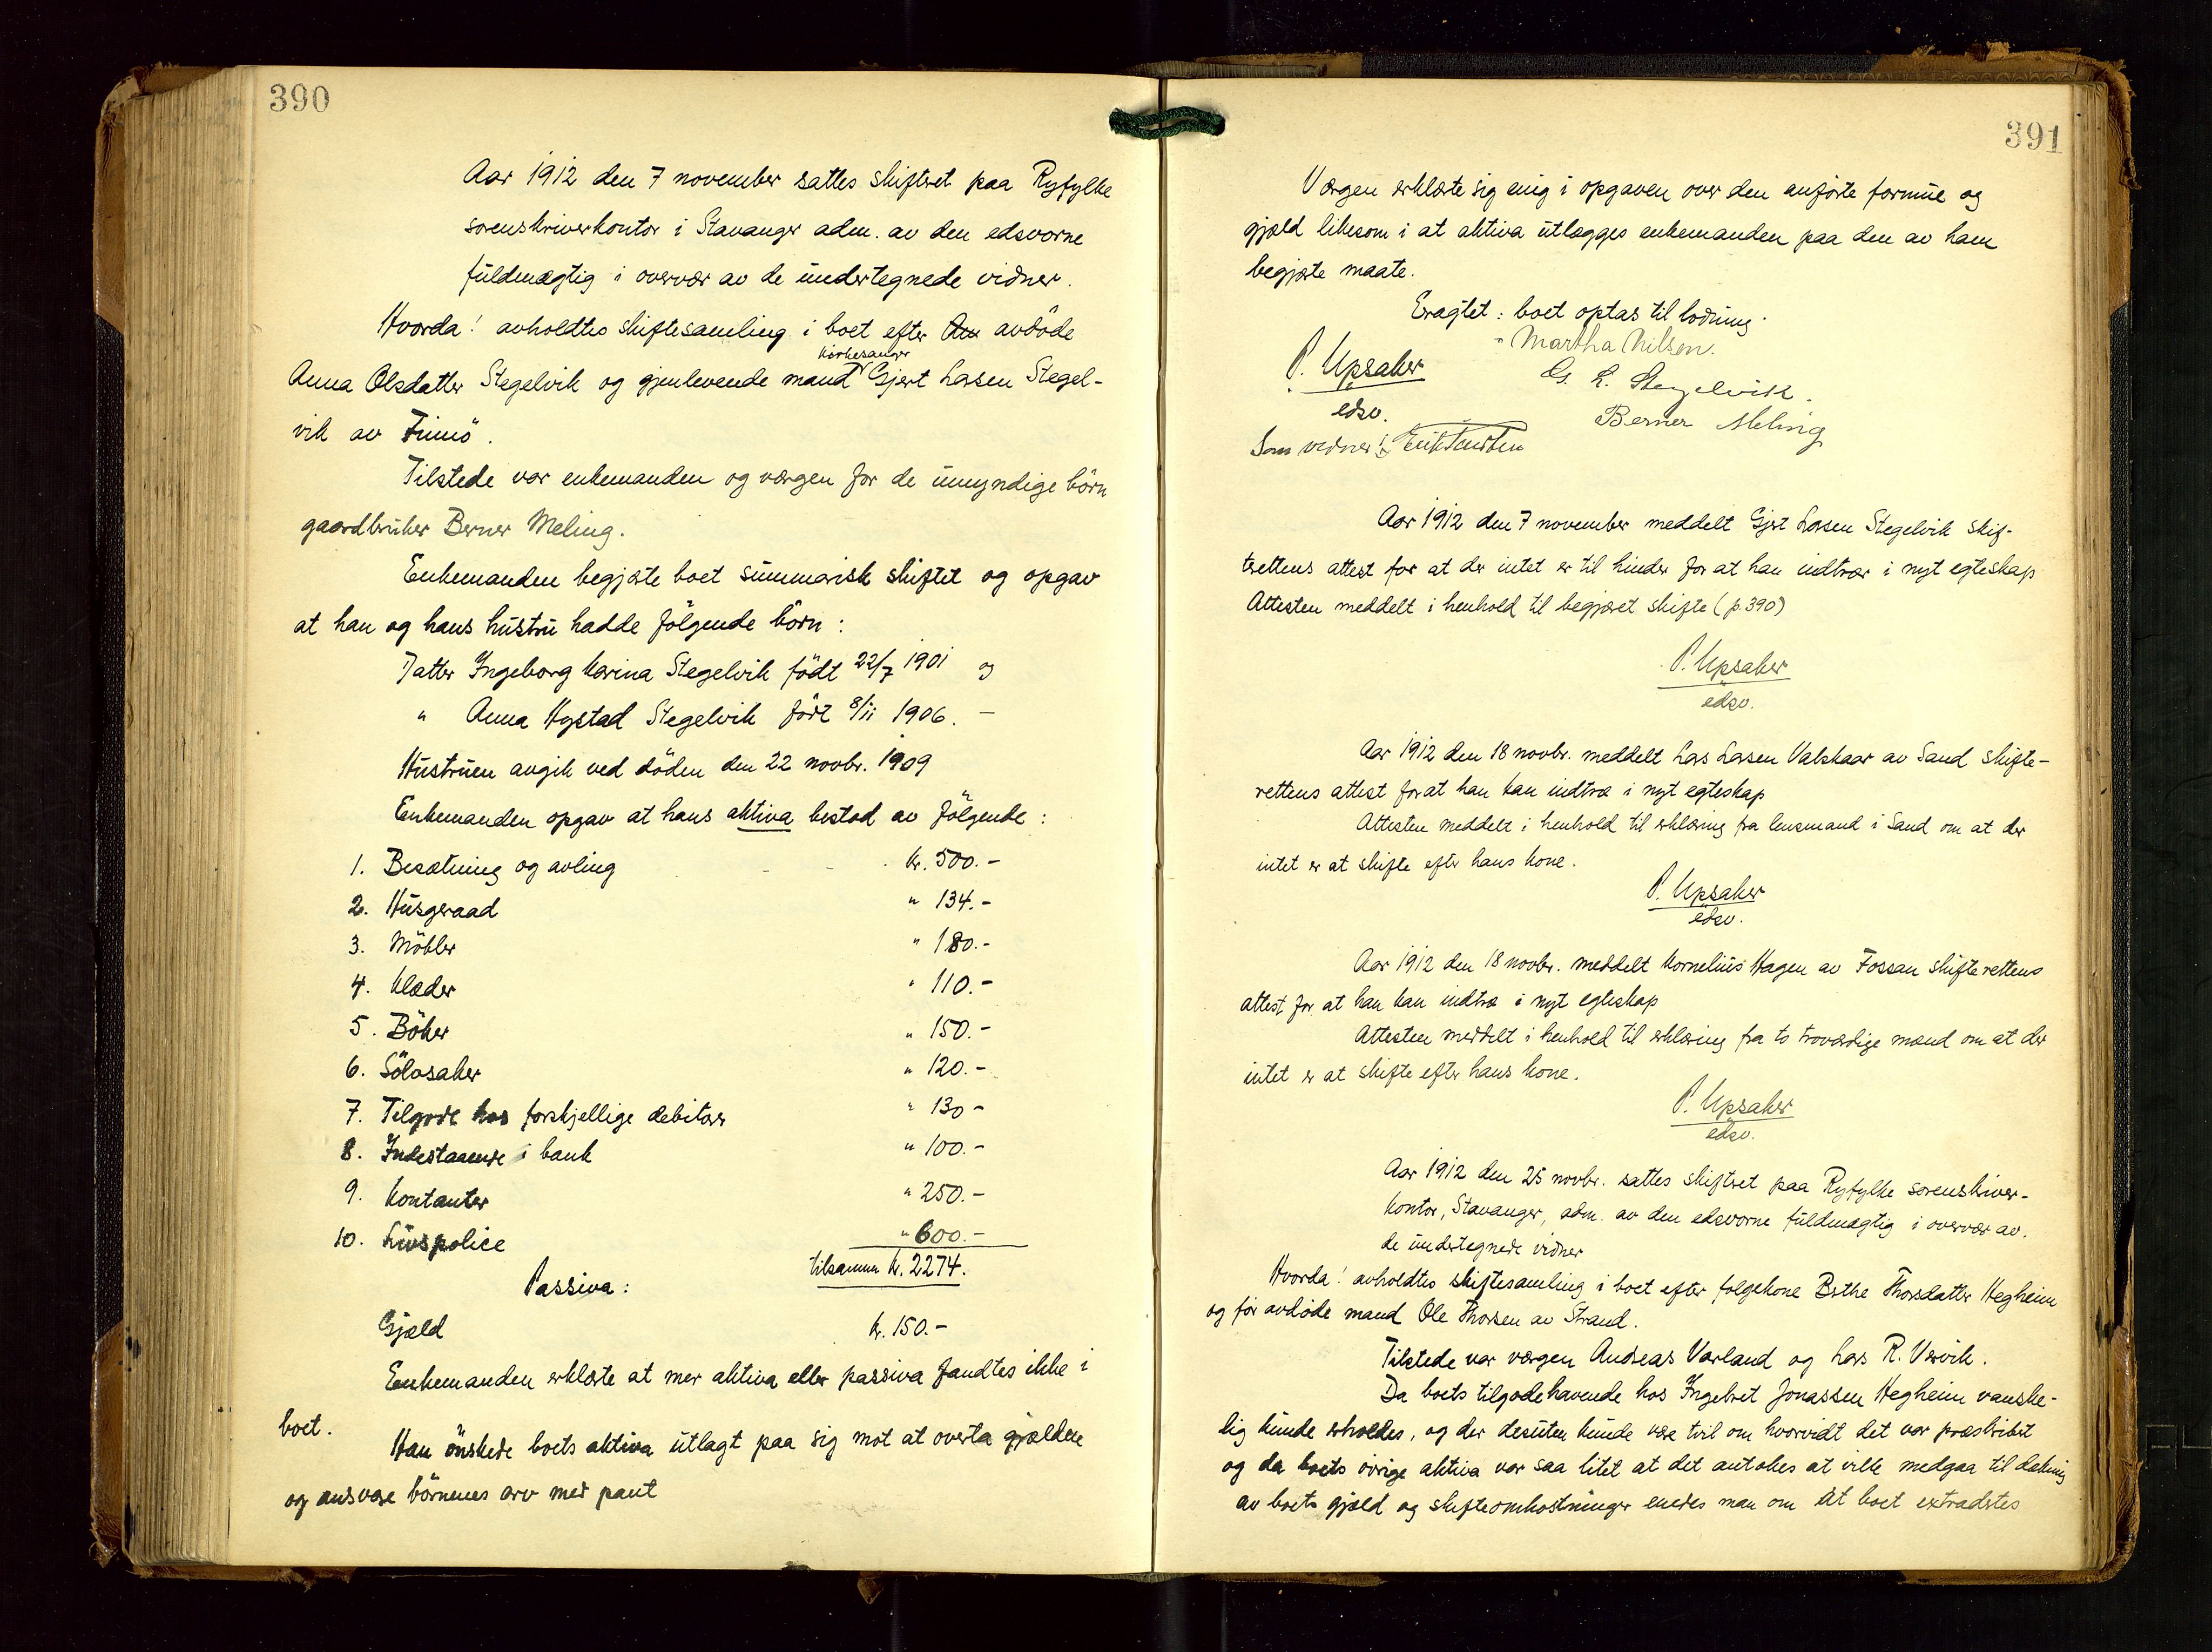 390
Aar 1912 den 7 november sattes skifteret paa Ryfylke
sorenskriverkontor i Stavanger adm. av den edsvorne
fuldmægtig i overvær av de undertegnede vidner.
Hvorda! avholdtes skiftesamling i boet efter avdöde
kirkesanger
Anna Olsdatter Stegelvik og gjenlevende mand Gjert Lasen Stegel-
vik av Finnö.
Tilstede var enkemanden og værgen for de umyndige börn
gaardbruker Berner Meling.
Enkemanden begjærte boet summarisk skiftet og opgav
at han og hans hustru hadde fölgende börn:
Datter Ingeborg Karina Stegelvik födt 22/7 1901 og
" Anna Hystad Stegelvik födt 8/11 1906. -
Hustruen avgik ved döden den 22 novbr. 1909
Enkemanden opgav at hans aktiva bestod av fölgende:
1. Besætning og avling kr. 500.-
2. Husgeraad " 134.-
3. Möbler " 180.-
4. Klæder " 110.-
5. Böker " 150.-
6. Sölvsaker " 120.-
7. Tilgode hos forskjellige debitorer " 130 -
8. Indestaaende i bank " 100.-
9. Kontanter " 250.-
10. Livspolice " 600.-
tilsammen kr. 2274.
Passiva:
Gjæld kr. 150.-
Enkemanden erklærte at mer aktiva eller passiva fandtes ikke i
boet.
Han önskede boets aktiva utlagt paa sig mot at overta gjælden
og ansvare börnenes arv med pant
391
Værgen erklærte sig enig i opgaven over den anförte formue og
gjæld likesom i at aktiva utlægges enkemanden paa den av ham
begjærte maate.
Eragtet: boet optas til lodning.
Martha Nilsen.
P. Upsaker
edsv.
G. L. Stegelvik.
Berner Meling
Som vidner:
Aar 1912 den 7 november meddelt Gjert Lasen Stegelvik skif-
terettens attest for at der intet er til hinder for at han indtrær i nyt egteskap
Attesten meddelt i henhold til begjæret skifte (p. 390)
P. Upsaker
edsv.
Aar 1912 den 18 novbr. meddelt Lars Larsen Valskaar av Sand skifte-
rettens attest for at han kan indtræ i nyt egteskap
Attesten meddelt i henhold til erklæring fra lensmand i Sand om at der
intet er at skifte efter hans kone.
P. Upsaker
edsv.
Aar 1912 den 18 novbr. meddelt Kornelius Hagen av Fossan skifterettens
attest for at han kan indtræ i nyt egteskap
Attesten meddelt i henhold til erklæring fra to troværdige mænd om at der
intet er at skifte efter hans kone.
P. Upsaker
edsv.
Aar 1912 den 25 novbr. sattes skifteret paa Ryfylke sorenskriver-
kontor, Stavanger, adm. av den edsvorne fuldmægtig i overvær av
de undertegnede vidner
Hvorda! avholdtes skiftesamling i boet efter folgekone Berthe Thorsdatter Hegheim
og för avdöde mand Ole Thorsen av Strand.
Tilstede var værgen Andreas Varland og Lars R. Vervik.
Da boets tilgodehavende hos Ingebret Jonassen Hegheim vanske-
lig kunde erholdes, og der desuten kunde være tvil om hvorvidt det var præskribert
og da boets övrige aktiva var saa litet at det antokes at ville medgaa til dækning
av boets gjæld og skifteomkostninger enedes man om at boet extradertes